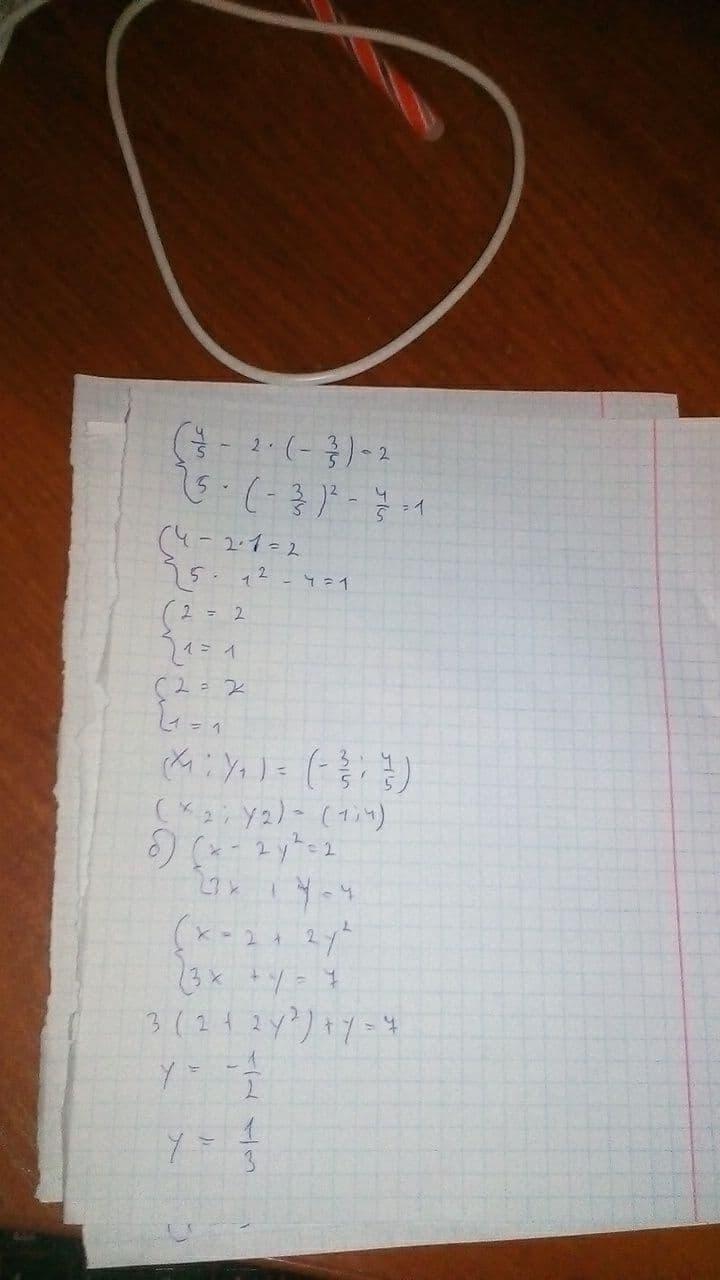 {4/5 - 2 · (- 3/5) = 2
{5 · (- 3/5)² - 4/5 = 1
{4 - 2·1 = 2
{5 · 1² - 4 = 1
{2 = 2
{1 = 1
{2 = 2
{1 = 1
(x₁; y₁) = (- 3/5; 4/5)
(x₂; y₂) = (1; 4)
б) {x - 2y² = 2
{3x + y = 7
{x = 2 + 2y²
{3x + y = 7
3(2 + 2y²) + y = 7
y = - 1/2
y = 1/3